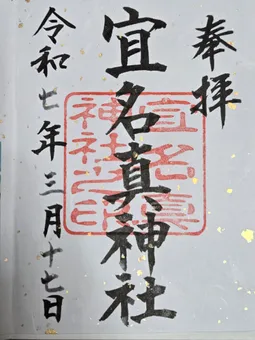 奉拝
宜名真神社
宜名真
神社之印
令和七年三月十七日